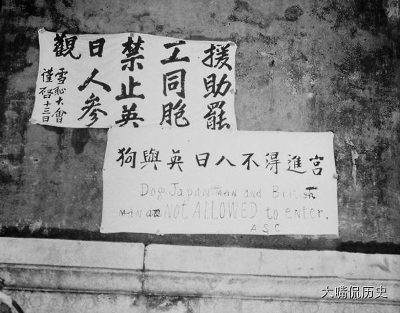 援助罷
工同胞
禁止英
日人參
觀
雪恥大會
謹啓十三日
狗與英日人不得進宮
Dog Japan man and Brit
man are NOT ALLOWED to enter.
A S C
大嘴侃历史